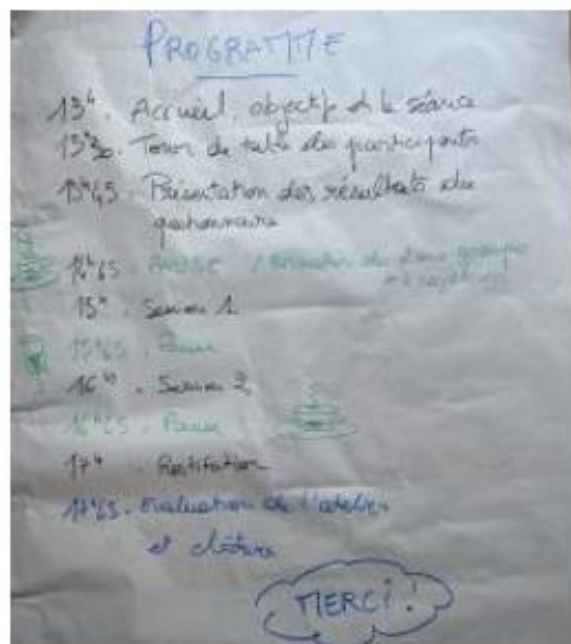 PROGRAMME
13h. Accueil, objectif de la séance
13h30. Tour de table des participants
13h45. Présentation des résultats du
questionnaire
14h45. PAUSE / des deux groupes
15h. Session 1
15h45. Pause
16h. Session 2
16h45. Pause
17h. Restitution
17h45. Evaluation de l'atelier
et clôture
MERCI !